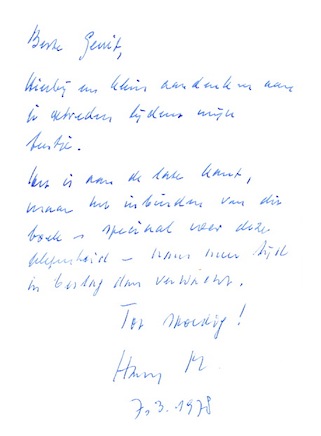 Beste Gerrit,
Hierbij een klein aandenken aan
je optreden tijdens mijn
feestje.
Het is aan de late kant,
maar het inbinden van dit
boek – speciaal voor deze
gelegenheid – nam meer tijd
in beslag dan verwacht.
Tot spoedig!
Harry M.
7.3.1978